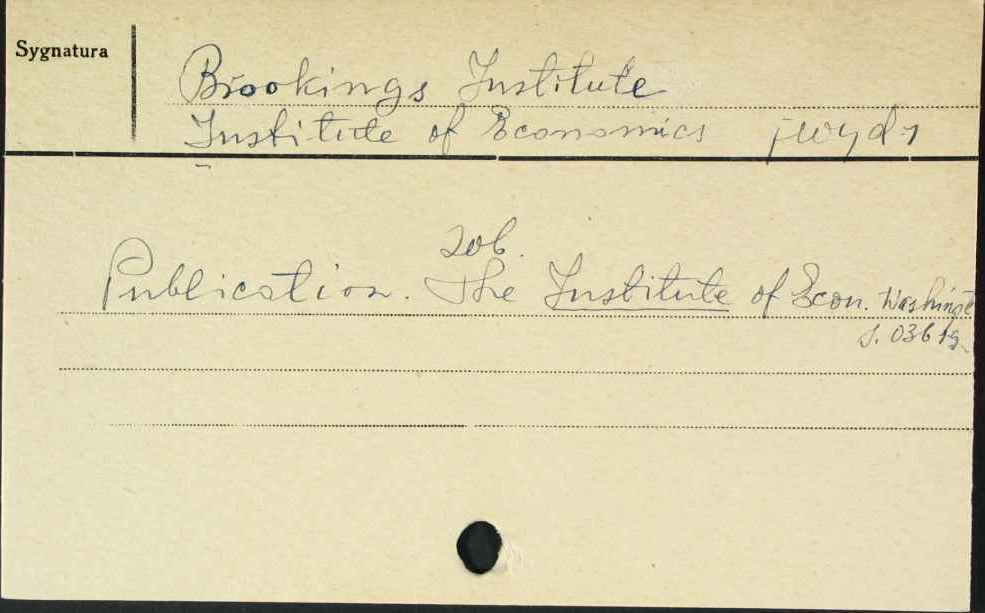 Sygnatura
Brookings Institute
Institute of Economics jwyd.
zob.
Publication. The Institute of Econ. Washingt
S. 03619